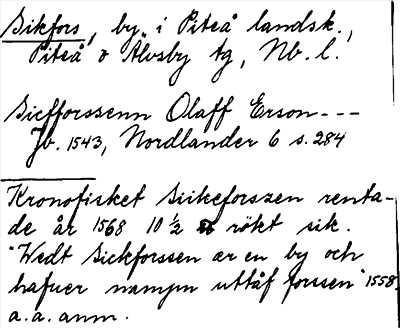 Sikfors, by, i Piteå landsk.,
Piteå o Älvsby tg, Nb. l.
Siefforssenn Olaff Erson---
Jb. 1543, Nordlander 6 s. 284
Kronofisket Siikeforszen renta-
de år 1568 10 ½ rökt sik.
"Wedt Sickforssen ær en by och
hafuer nampn uttåf forssen" 1558
a.a. anm.